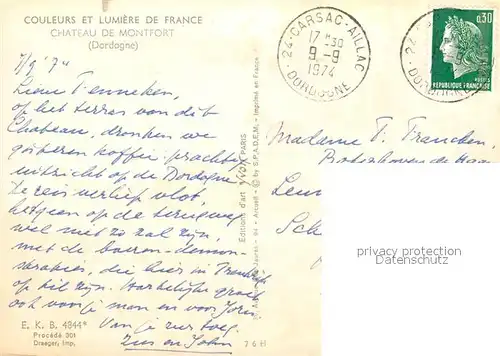 COULEURS ET LUMIÈRE DE FRANCE
CHATEAU DE MONTFORT
(Dordogne)
7/9 '74
Lieve Tenneken,
op het terras van dit
Chateau, dronken we
gisteren koffie. prachtig
uitzicht op de Dordogne
De reis verliep vlot,
hetgeen op de terugweg
wel niet zo zal zijn,
met de boeren-demon-
straties, die hier in Frankrijk
op til zijn. Hartelijke groet
ook voor je man en voor
Van je zus
Zus en John
E. K. B. 4844*
Procédé 301
Draeger, Imp.
7 6 H
Editions d'art YVON PARIS
Arcueil - © by S.P.A.D.E.M. - Imprimé en France
24-CARSAC-AILLAC
17 H 30
9-9
1974
DORDOGNE
0,30
POSTES
REPUBLIQUE FRANÇAISE
Madame T. Francken,
privacy protection
Datenschutz